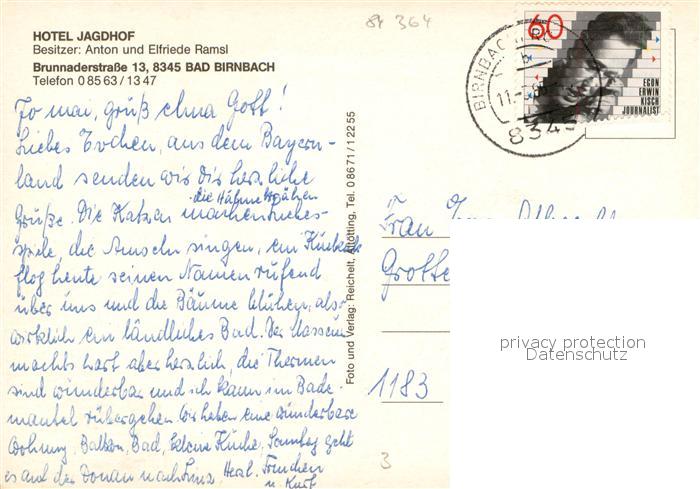 HOTEL JAGDHOF
Besitzer: Anton und Elfriede Ramsl
Brunnaderstraße 13, 8345 BAD BIRNBACH
Telefon 0 85 63 / 13 47
84 364
60
EGON
ERWIN
KISCH
JOURNALIST
BIRNBACH
11.
8345
Jo mai, grüß Gott!
Liebes, aus dem Bayern-
land senden wir Dir herzliche
die Hähne krähen
Grüße. Die Katzen machen Liebes-
spiele, die Amseln singen, ein Kuckuck
flog heute seinen Namen rufend
über uns und die Bäume blühen, also
wirklich ein ländliches Bad. Der Masseur
machts hart aber herzlich, die Thermen
sind wunderbar und ich kann im Bade-
mantel rübergehen. Wir haben eine wunderbare
Wohnung, Balkon, Bad, kleine Küche, Sonntag geht
es auf der Donau nach Linz. Herzl. Trudchen
u. Kurt
Foto und Verlag: Reichelt, Altötting, Tel. 0 86 71 / 1 22 55
Frau
Grotte
1183
3
privacy protection
Datenschutz